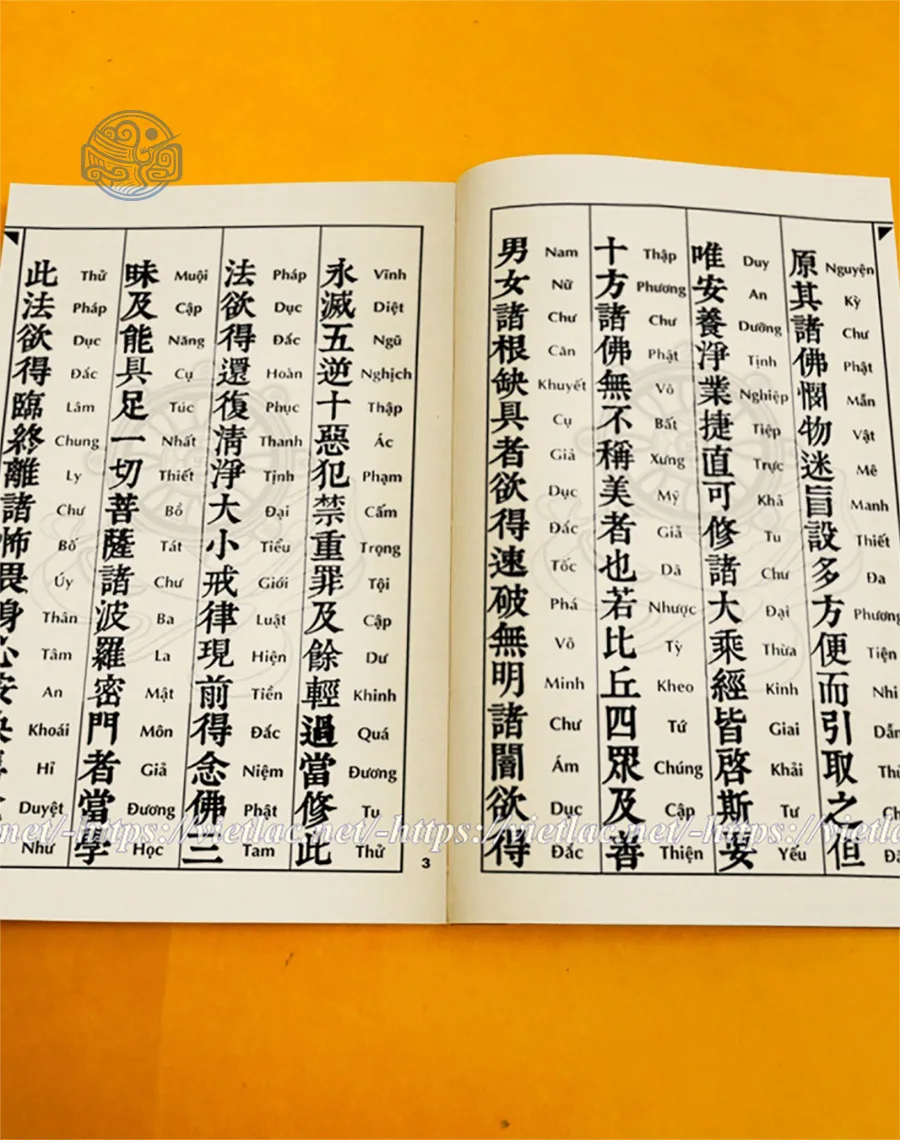 原其諸佛憫物迷盲設多方便而引取之但
Nguyện Kỳ Chư Phật Mẫn Vật Mê Manh Thiết Đa Phương Tiện Nhi
唯安養淨業捷直可修諸大乘經皆啓斯要
Duy An Dưỡng Tịnh Nghiệp Tiệp Trực Khả Tu Chư Đại Thừa Kinh Giai Khải Tư Yếu
十方諸佛無不稱美者也若比丘四眾及善
Thập Phương Chư Phật Vô Bất Xưng Mỹ Giả Dã Nhược Tỳ Kheo Tứ Chúng Cập Thiện
男女諸根缺具者欲得速破無明諸闇欲得
Nam Nữ Chư Căn Khuyết Cụ Giả Dục Đắc Tốc Phá Vô Minh Chư Ám Dục Đắc
永滅五逆十惡犯禁重罪及餘輕過當修此
Vĩnh Diệt Ngũ Nghịch Thập Ác Phạm Cấm Trọng Tội Cập Dư Khinh Quá Đương Tu Thử
法欲得還復清淨大小戒律現前得念佛三
Pháp Dục Đắc Hoàn Phục Thanh Tịnh Đại Tiểu Giới Luật Hiện Tiền Đắc Niệm Phật Tam
昧及能具足一切菩薩諸波羅密門者當學
Muội Cập Năng Cụ Túc Nhất Thiết Bồ Tát Chư Ba La Mật Môn Giả Đương Học
此法欲得臨終離諸怖畏身心安
Thử Pháp Dục Đắc Lâm Chung Ly Chư Bố Úy Thân Tâm An Khoái Hỉ Duyệt Như
3
net/-https://vietlac.net/-https://vietlac.net/-